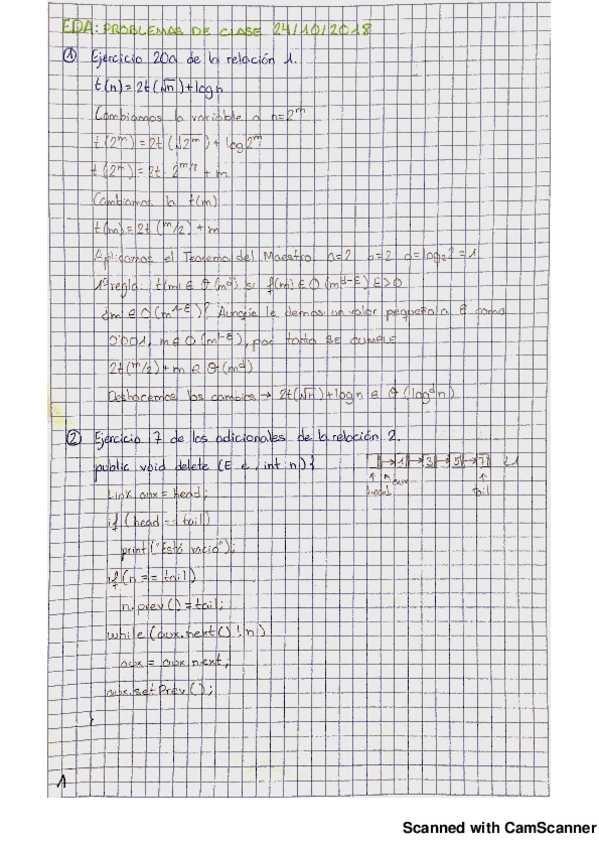 EDA: PROBLEMAS DE CLASE 24/10/2018
① Ejercicio 20a de la relación 1.
t(n) = 2t(√n) + logn
Cambiamos la variable a n=2^m
t(2^m) = 2t(√2^m) + log2^m
t(2^m) = 2t · 2^m/2 + m
Cambiamos la t(m)
t(m) = 2t(m/2) + m
Aplicamos el Teorema del Maestro. a=2 b=2 d=log₂2=1
1ª regla: t(m) ∈ θ(m^d) si f(m) ∈ O(m^d-ε) ε>0
¿m ∈ O(m^1-ε)? Aunque le demos un valor pequeño a ε como
0'001, m ∈ O(m^1-ε), por tanto SE CUMPLE
2t(m/2) + m ∈ θ(m^d)
Deshacemos los cambios → 2t(√n) + logn ∈ θ(log^d n)
② Ejercicio 7 de los adicionales de la relación 2.
public void delete (E e, int n){
Link aux = head;
if (head == tail)
print("Está vacío");
if (n == tail)
n.prev() = tail;
while (aux.next() ! n)
aux = aux.next;
aux.setPrev();
}
1 3 5 7
head aux tail
1
Scanned with CamScanner